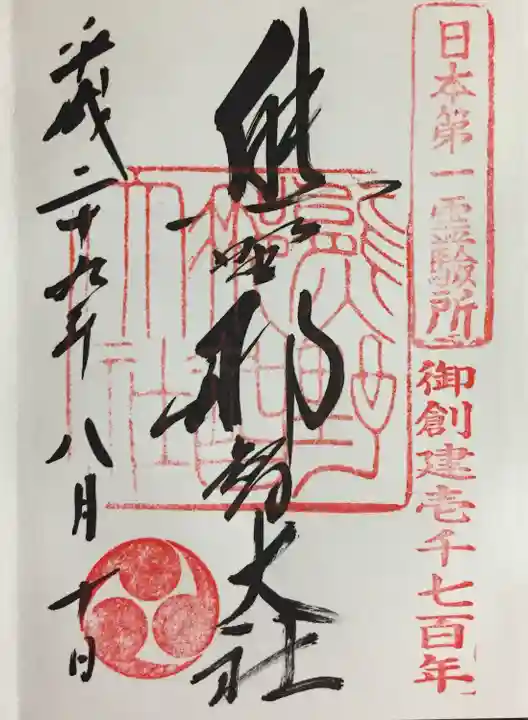 日本第一霊験所
御創建壱千七百年
熊野那智大社
平成二十九年八月十日